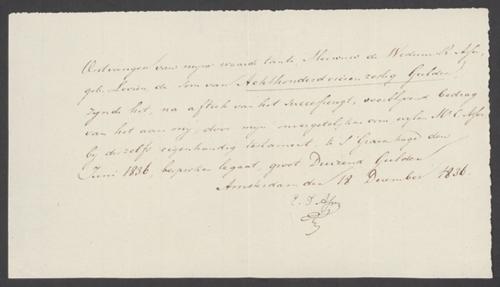 Ontvangen van mijne waarde tante, Mevrouw de Weduwe R. Asser,
geb. Levien, de som van Achthonderd vier en zestig Gulden!
zynde het, na aftrek van het successieregt, overblyvend bedrag
van het aan my, door mijn onvergetelyken oom wylen Mr. C. Asser
by deszelfs eigenhandig testament, te 's Gravenhage den
Juni 1836, besproken legaat, groot Duizend Gulden
Amsterdam den 18 December 1836.
C. D. Asser